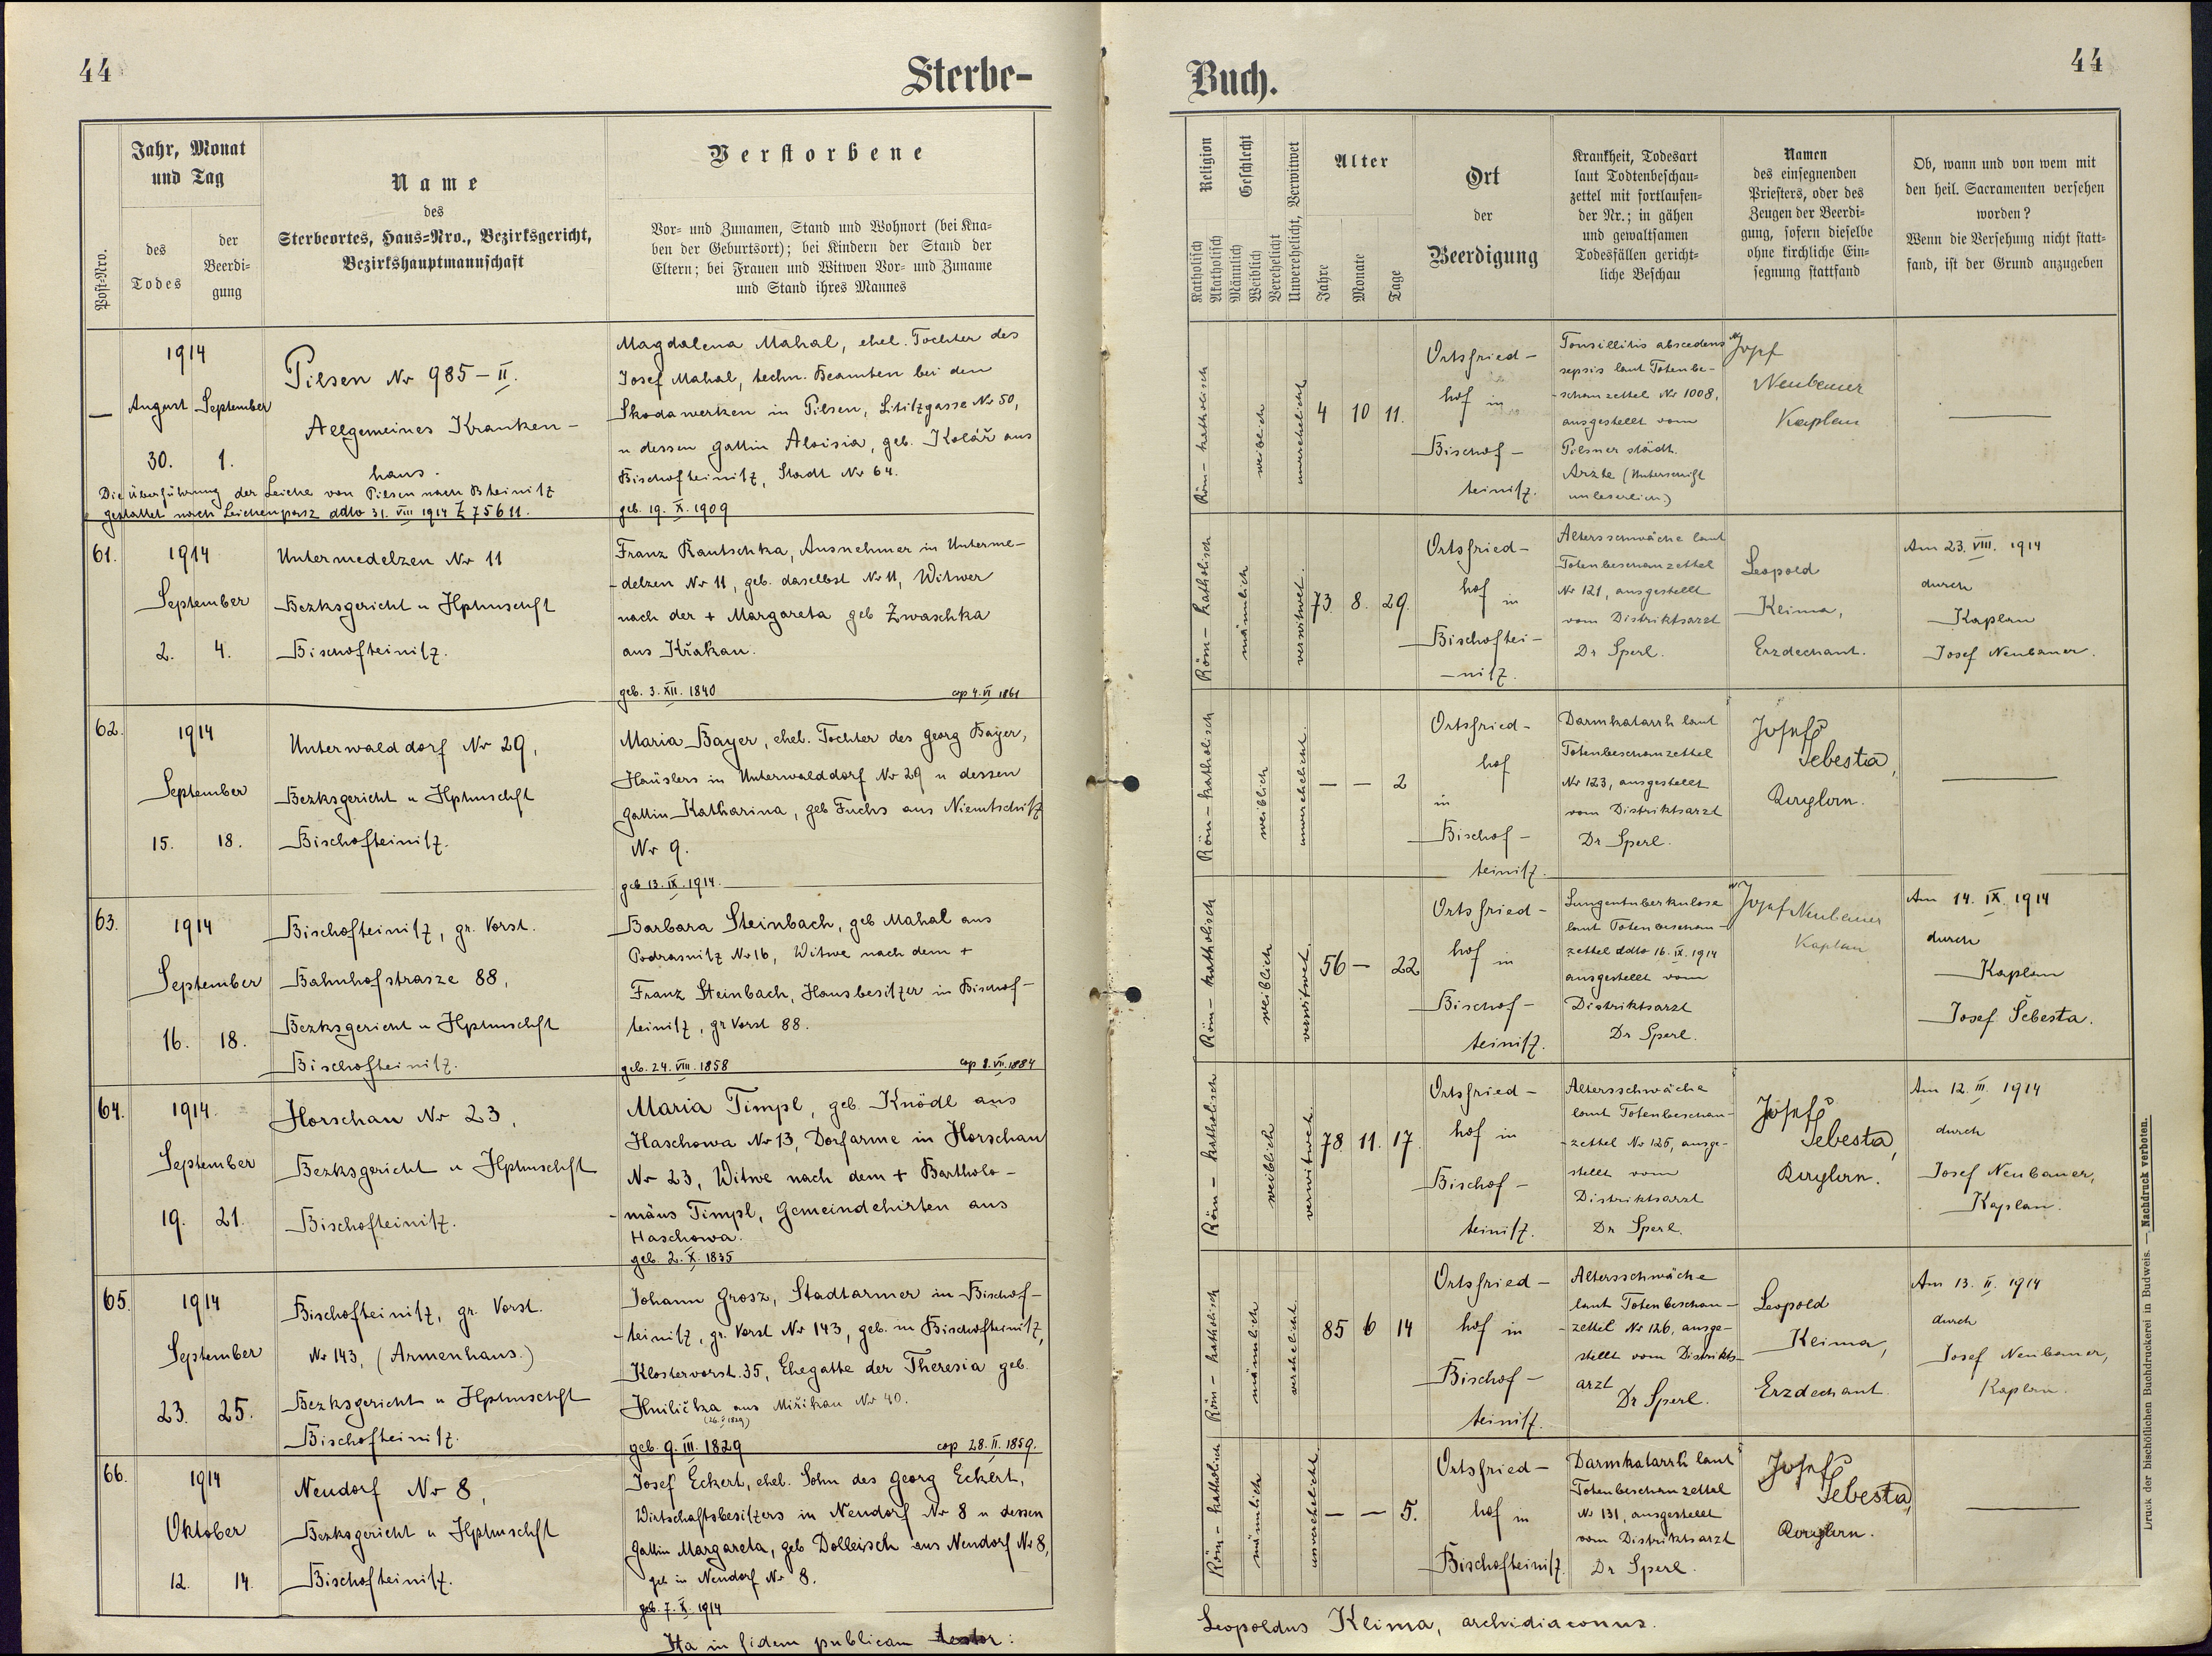 44
Sterbe-
Post-Nro.
Jahr, Monat
und Tag
des
Todes
der
Beerdi-
gung
Name
des
Sterbeortes, Haus-Nro., Bezirksgericht,
Bezirkshauptmannschaft
Verstorbene
Vor- und Zunamen, Stand und Wohnort (bei Kna-
ben der Geburtsort); bei Kindern der Stand der
Eltern; bei Frauen und Witwen Vor- und Zuname
und Stand ihres Mannes
—
1914
August September
30. 1.
Pilsen Nr 985 – II.
Allgemeines Kranken-
haus.
Die Überführung der Leiche von Pilsen nach Bteinitz
gestattet nach Leichenpasz ddto 31. VIII 1914 Z 75611.
Magdalena Mahal, ehel. Tochter des
Josef Mahal, techn. Beamten bei den
Skodawerken in Pilsen, Lititzgasse Nr 50,
u dessen Gattin Aloisia, geb. Kolář aus
Bischofteinitz, Stadt Nr 64.
geb. 19. X. 1909
61.
1914
September
2. 4.
Untermedelzen Nr 11
Bezksgericht u Hptmschft
Bischofteinitz.
Franz Rautschka, Ausnehmer in Unterme-
-delzen Nr 11, geb. daselbst Nr 11, Witwer
nach der + Margareta geb Zwaschka
aus Křakau.
geb. 3. XII. 1840 cop 4. VI 1861
62.
1914
September
15. 18.
Unterwalddorf Nr 29,
Bezksgericht u Hptmschft
Bischofteinitz.
Maria Bayer, ehel. Tochter des Georg Bayer,
Häuslers in Unterwalddorf Nr 29 u dessen
Gattin Katharina, geb Fuchs aus Niemtschitz
Nr 9.
geb 13. IX. 1914.
63.
1914
September
16. 18.
Bischofteinitz, gr. Vorst.
Bahnhofstrasze 88,
Bezksgericht u Hptmschft
Bischofteinitz.
Barbara Steinbach, geb Mahal aus
Podrasnitz Nr 16, Witwe nach dem +
Franz Steinbach, Hausbesitzer in Bischof-
teinitz, gr Vorst 88.
geb. 24. VIII. 1858 cop 8. VII. 1884
64.
1914
September
19. 21.
Horschau Nr 23,
Bezksgericht u Hptmschft
Bischofteinitz.
Maria Timpl, geb. Knödl aus
Haschowa Nr 13, Dorfarme in Horschau
Nr 23, Witwe nach dem + Bartholo-
-mäus Timpl, Gemeindehirten aus
Haschowa.
geb. 2. X. 1835
65.
1914
September
23. 25.
Bischofteinitz, gr. Vorst.
Nr 143, (Armenhaus.)
Bezksgericht u Hptmschft
Bischofteinitz.
Johann Grosz, Stadtarmer in Bischof-
-teinitz, gr. Vorst Nr 143, geb. in Bischofteinitz,
Klostervorst. 35, Ehegatte der Theresia geb.
Hnilička aus Miřikau Nr 40.
geb. 9. III. 1829 cop 28. II. 1859.
66.
1914
Oktober
12. 14.
Neudorf Nr 8,
Bezksgericht u Hptmschft
Bischofteinitz.
Josef Eckert, ehel. Sohn des Georg Eckert,
Wirtschaftsbesitzers in Neudorf Nr 8 u dessen
Gattin Margareta, geb Dolleisch aus Neudorf Nr 8,
geb in Neudorf Nr 8.
geb. 7. X. 1914
Ita in fidem publicam testor:
44
Buch.
Religion
Katholisch
Akatholisch
Geschlecht
Männlich
Weiblich
Verehelicht
Unverehelicht, Verwitwet
Alter
Jahre
Monate
Tage
Ort
der
Beerdigung
Krankheit, Todesart
laut Todtenbeschau-
zettel mit fortlaufen-
der Nr.; in gähen
und gewaltsamen
Todesfällen gericht-
liche Beschau
Namen
des einsegnenden
Priesters, oder des
Zeugen der Beerdi-
gung, sofern dieselbe
ohne kirchliche Ein-
segnung stattfand
Ob, wann und von wem mit
den heil. Sacramenten versehen
worden?
Wenn die Versehung nicht statt-
fand, ist der Grund anzugeben
Röm – katholisch
weiblich
unverehelicht
4 10 11.
Ortsfried-
hof in
Bischof-
teinitz.
Tonsillitis abscedens
sepsis laut Totenbe-
-schauzettel Nr 1008,
ausgestellt vom
Pilsner städt.
Arzte (Unterschrift
unleserlich)
Josef
Neubauer
Kaplan
—
Röm – katholisch
männlich
verwitwet.
73. 8. 29.
Ortsfried-
hof in
Bischoftei-
-nitz.
Altersschwäche laut
Totenbeschauzettel
Nr 121, ausgestellt
vom Distriktsarzt
Dr Sperl.
Leopold
Klima,
Erzdechant.
Am 23. VIII. 1914
durch
Kaplan
Josef Neubauer.
Röm – katholisch
weiblich
unverehelicht.
— — 2
Ortsfried-
hof
in
Bischof-
teinitz.
Darmkatarrh laut
Totenbeschauzettel
Nr 123, ausgestellt
vom Distriktsarzt
Dr Sperl.
Josef
Šebesta,
Kaplan.
—
Röm – katholisch
weiblich
verwitwet.
56 — 22
Ortsfried-
hof in
Bischof-
teinitz.
Lungentuberkulose
laut Totenbeschau-
zettel ddto 16. IX. 1914
ausgestellt vom
Distriktsarzt
Dr Sperl.
Josef Neubauer
Kaplan
Am 14. IX. 1914
durch
Kaplan
Josef Šebesta.
Röm – katholisch
weiblich
verwitwet.
78. 11. 17.
Ortsfried-
hof in
Bischof-
teinitz.
Altersschwäche
laut Totenbeschau-
-zettel Nr 125, ausge-
stellt vom
Distriktsarzt
Dr Sperl.
Josef
Šebesta,
Kaplan.
Am 12. III. 1914
durch
Josef Neubauer,
Kaplan.
Röm – katholisch
männlich
verehelicht.
85 6 14
Ortsfried-
hof in
Bischof-
teinitz.
Altersschwäche
laut Totenbeschau-
-zettel Nr 126, ausge-
stellt vom Distrikts-
arzt
Dr Sperl.
Leopold
Klima,
Erzdechant.
Am 13. II. 1914
durch
Josef Neubauer,
Kaplan.
Röm – katholisch
männlich
unverehelicht.
— — 5.
Ortsfried-
hof in
Bischofteinitz.
Darmkatarrh laut
Totenbeschauzettel
Nr 131, ausgestellt
vom Distriktsarzt
Dr Sperl.
Josef
Šebesta,
Kaplan.
—
Leopoldus Klima, archidiaconus.
Druck der bischöflichen Buchdruckerei in Budweis. — Nachdruck verboten.